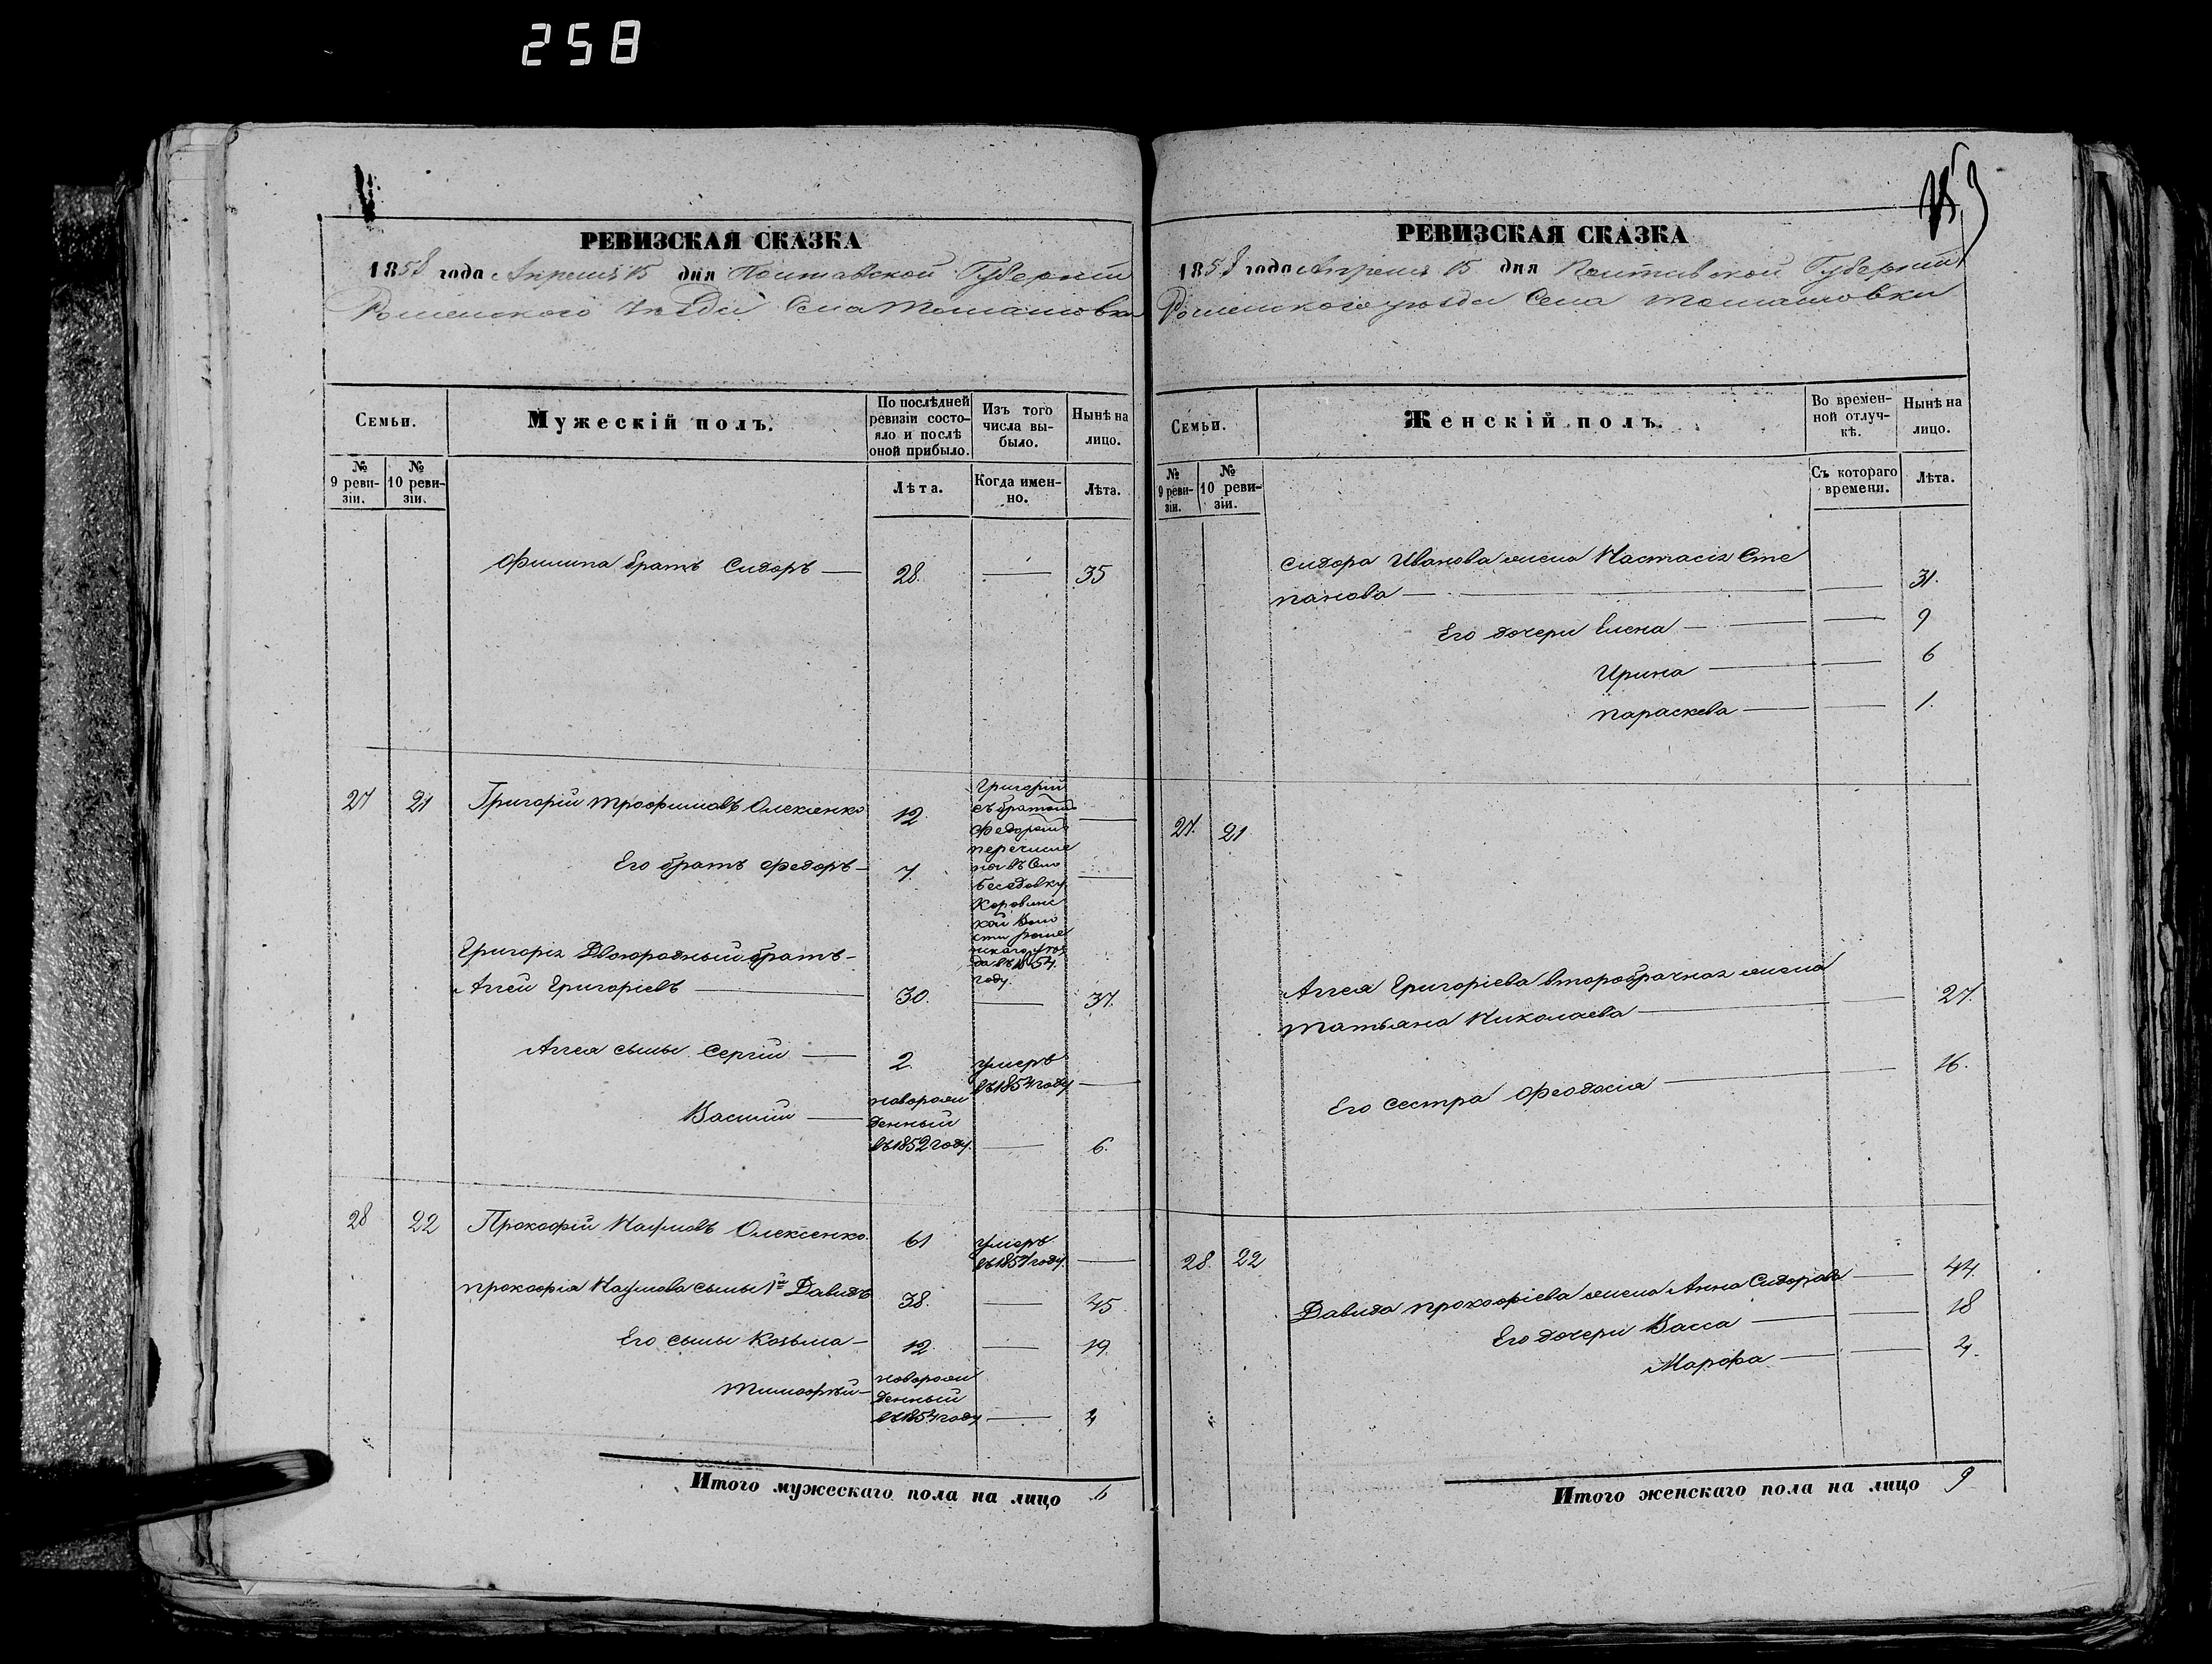 258
РЕВИЗСКАЯ СКАЗКА
1858 года Апреля 15 дня Полтавской Губерніи
Роменского уѣзда Села Томашовки
Семьи.
Мужескій полъ.
По послѣдней ревизіи состояло и послѣ оной прибыло.
Изъ того числа выбыло.
Нынѣ на лицо.
№ 9 ревизіи.
№ 10 ревизіи.
Лѣта.
Когда именно.
Лѣта.
Филипа братъ Сидоръ — 28. — 35
27 21 Григорій Трофимовъ Олексіенко 12. —
Его братъ Федоръ — 7. —
Григорій
съ братомъ
Федоромъ
перечисле
ны въ Село
Беседовку
Коровинс
кой Воло
сти Роме
нского уѣз
да въ 1854
году.
Григорія Двоюродный братъ —
Аггей Григоріевъ — 30. — 37.
Аггея сыны Сергій — 2. умеръ
въ 1854 году —
Василій — новорож
денный
въ 1852 году. — 6.
28 22 Прокофій Наумовъ Олексіенко. 61 умеръ
въ 1857 году. —
Прокофія Наумова сыны 1й Давидъ 38. — 45.
Его сыны Козьма — 12 — 19.
Тимофѣй — новорож
денный
въ 1854 году — 4
Итого мужескаго пола на лицо 6
РЕВИЗСКАЯ СКАЗКА
1858 года Апреля 15 дня Полтавской Губерніи
Роменского уѣзда Села Томашовки
Семьи.
Женскій полъ.
Во временной отлучкѣ.
Нынѣ на лицо.
№ 9 ревизіи.
№ 10 ревизіи.
Съ котораго времени.
Лѣта.
Сидора Иванова жена Настасія Сте
панова — — 31.
Его дочери Елена — — 9
Ирина — — 6
Параскева — — 1.
27. 21
Аггея Григоріева второбрачная жена
Татьяна Николаева — — 27.
Его сестра Феодосія — — 16.
28. 22
Давида Прокофіева жена Анна Сидорова — 44.
Его дочери Васса — — 18
Марфа — — 4.
Итого женскаго пола на лицо 9